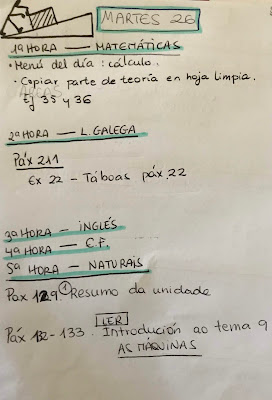 MARTES 26
1ª HORA — MATEMÁTICAS
• Menú del día : cálculo.
• Copiar parte de teoría en hoja limpia.
Ej 35 y 36
2ª HORA — L. GALEGA
Páx 211
Ex 22 - Táboas páx 22
3ª HORA — INGLÉS
4ª HORA — C.F.
5ª HORA — NATURAIS
Páx 129 ① Resumo da unidade
LER
Páx 132-133. Introdución ao tema 9
AS MÁQUINAS